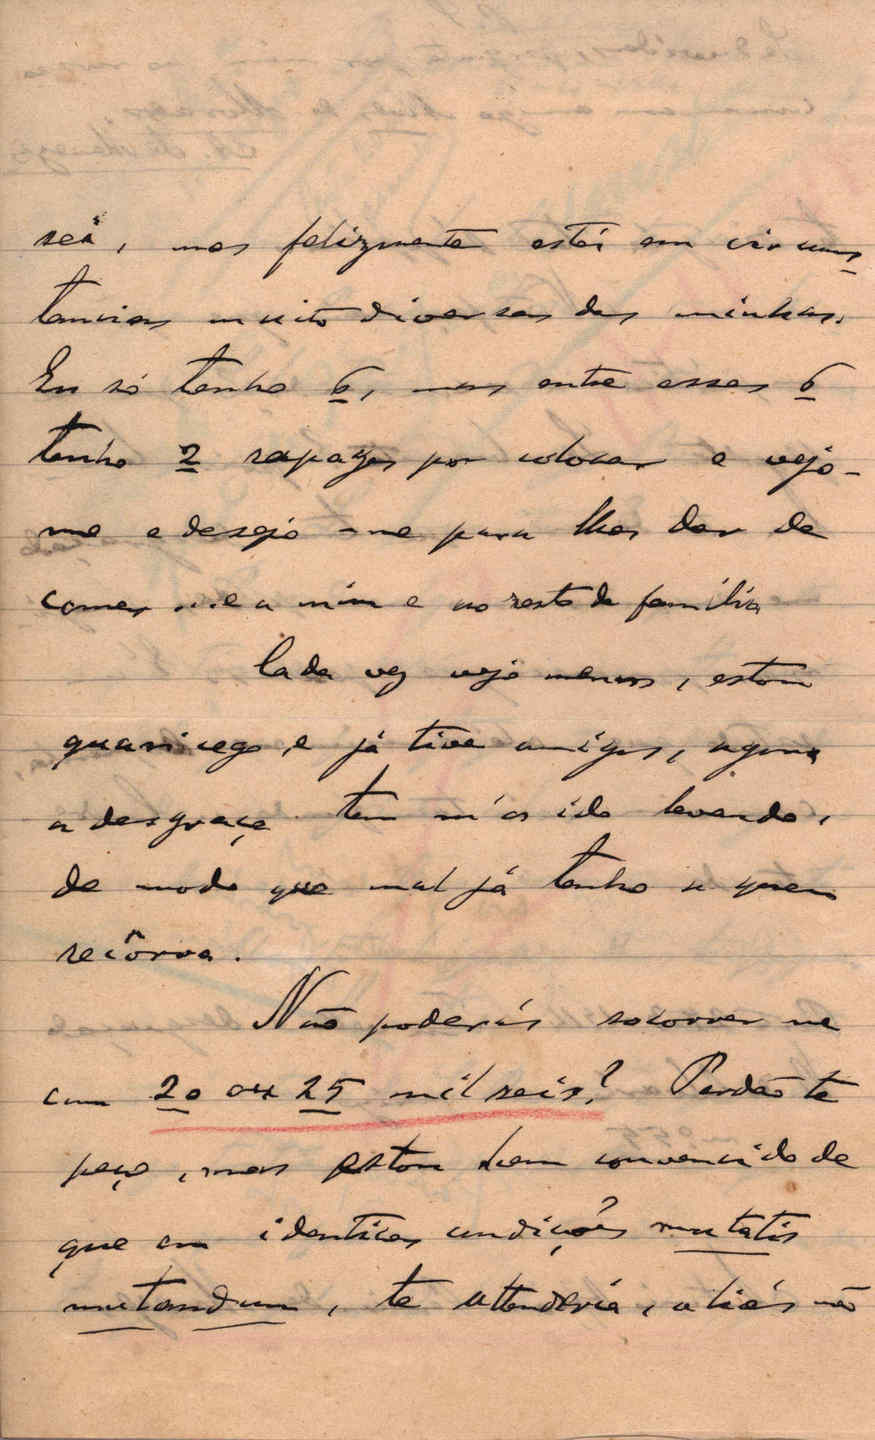 sei, mas felizmente estás em circuns
tancias muito diversas das minhas.
Eu só tenho 6, mas entre esses 6
tenho 2 rapazes por colocar e vejo-
me e desejo-me para lhes dar de
comer ... e a mim e ao resto da família
Cada vez vejo menos, estou
quasi cego, e já tive amigos, agora
a desgraça tem m'os ido levando,
de modo que mal já tenho a quem
recôrra.
Não poderás socorrer me
com 20 ou 25 mil reis? Perdão te
peço, mas estou bem convencido de
que em identicas condições mutatis
mutandum, te attenderia, aliás não